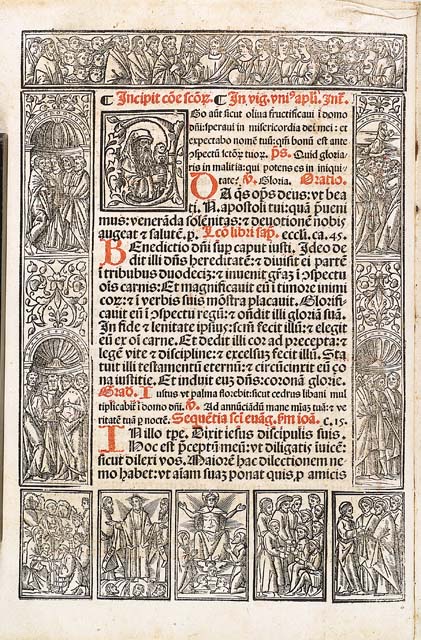 ¶ Incipit cōe scōꝝ. ¶ In vig. vniꝰ apl̄i. Int̄.
Go aūt sicut oliua fructificaui ī domo
dn̄i: speraui in misericordia dei mei: et
expectabo nomē tuū: qm̄ bonū est ante
ɔspectū sctōꝝ tuoꝝ. p̄s. Quid gloria-
ris in malitia: qui potens es in iniqui-
tate? ℣. Gloria. Oratio.
DA q̄s op̄s deus: vt bea
ti. N. apostoli tui quā p̄ueni
mus: venerāda solēnitas: ⁊ deuotionē nobis
augeat ⁊ salutē. p. Lcō libri sap̄. eccli. ca. 45.
BEnedictio dn̄i sup̄ caput iusti. Ideo de
dit illi dn̄s hereditatē: ⁊ diuisit ei partē
ī tribubus duodecī: ⁊ inuenit gr̄az ī ɔspectu
oīs carnis: Et magnificauit eū ī timore inimi
coꝝ: ⁊ ī verbis suis mōstra placauit. Glorifi-
cauit eū ī ɔspectu regū: ⁊ on̄dit illi gloriā suā.
In fide ⁊ lenitate ipsiꝰ: scm̄ fecit illū: ⁊ elegit
eū ex oī carne. Et dedit illi cor ad precepta: ⁊
legē vite ⁊ discipline: ⁊ excelsuȝ fecit illū. Sta
tuit illi testamentū eternū: ⁊ circūcinxit eū co
na iustitie. Et induit euȝ dn̄s: coronā glorie.
Grad. Iustus vt palma florebit: sicut cedrus libani mul
tiplicabit̄ ī domo dn̄i. ℣. Ad annūciādū mane mīaȝ tuā: ⁊ ve
ritatē tuā p noctē. Sequētia scī euāg. ẜm ioā. c. 15.
IN illo tp̄e. Dixit iesus discipulis suis.
Hoc est p̄ceptū meū: vt diligatis īuicē:
sicut dilexi vos. Maiorē hac dilectionem ne-
mo habet: vt aīam suaȝ ponat quis, p amicis